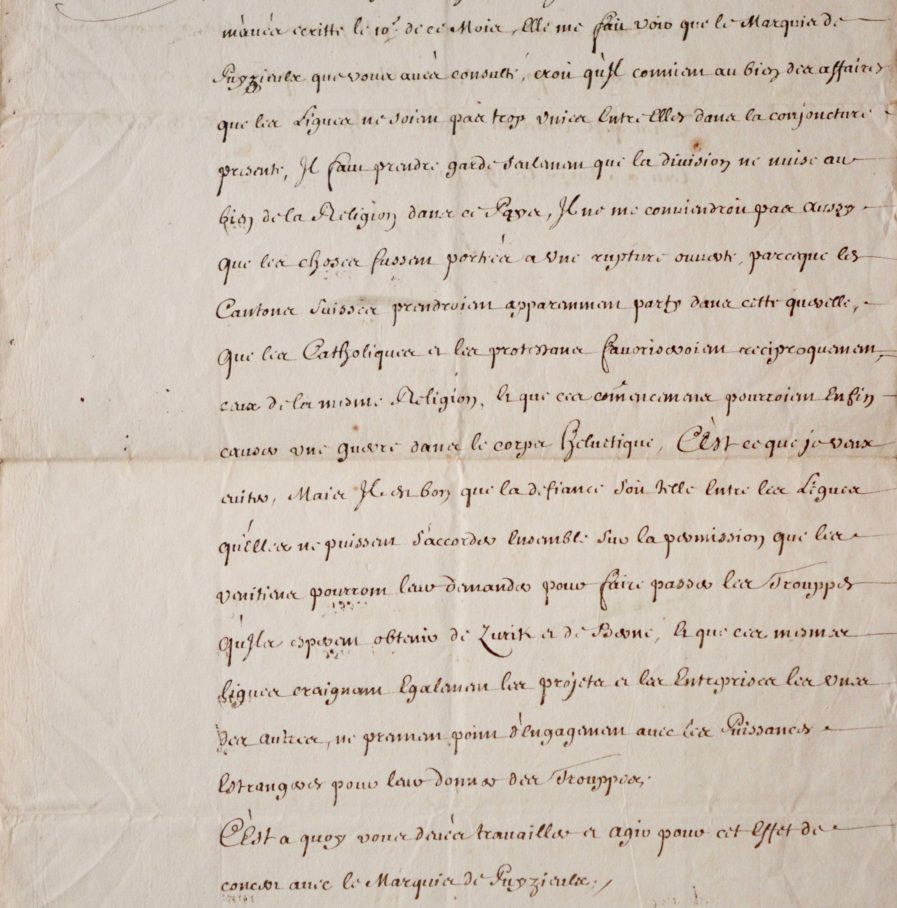 m'avés escritte le 10.^e de ce Mois, Elle me fait voir que le Marquis de
Puyzieulx que vous avés consulté, croit qu'Il convient au bien des affaires
que les Ligues ne soient pas trop unies Entre Elles dans la conjoncture
presente, Il faut prendre garde seulement que la division ne nuise au
bien de la Religion dans ce Pays, Il ne me conviendroit pas aussy
que les choses fussent portées a une rupture ouverte, parceque les
Cantons Suisses prendroient apparemment party dans cette querelle,
Que les Catholiques et les protestans favoriseroient reciproquement
ceux de la mesme Religion, Et que ces comencemens pourroient Enfin
causer une guerre dans le corps Helvetique, C'Est ce que je veux
eviter, Mais Il est bon que la defiance soit telle Entre les Ligues
qu'Elles ne puissent s'accorder Ensemble sur la permission que les
venitiens pourront leur demander pour faire passer les Trouppes
qu'Ils esperent obtenir de Zurik et de Berne, Et que ces mesmes
Ligues craignant Egalement les projets et les Entreprises les unes
des autres, ne prennent point d'Engagement avec les Puissances
Estrangeres pour leur donner des Trouppes,
C'Est a quoy vous devés travailler et agir pour cet Effet de
concert avec le Marquis de Puyzieulx,